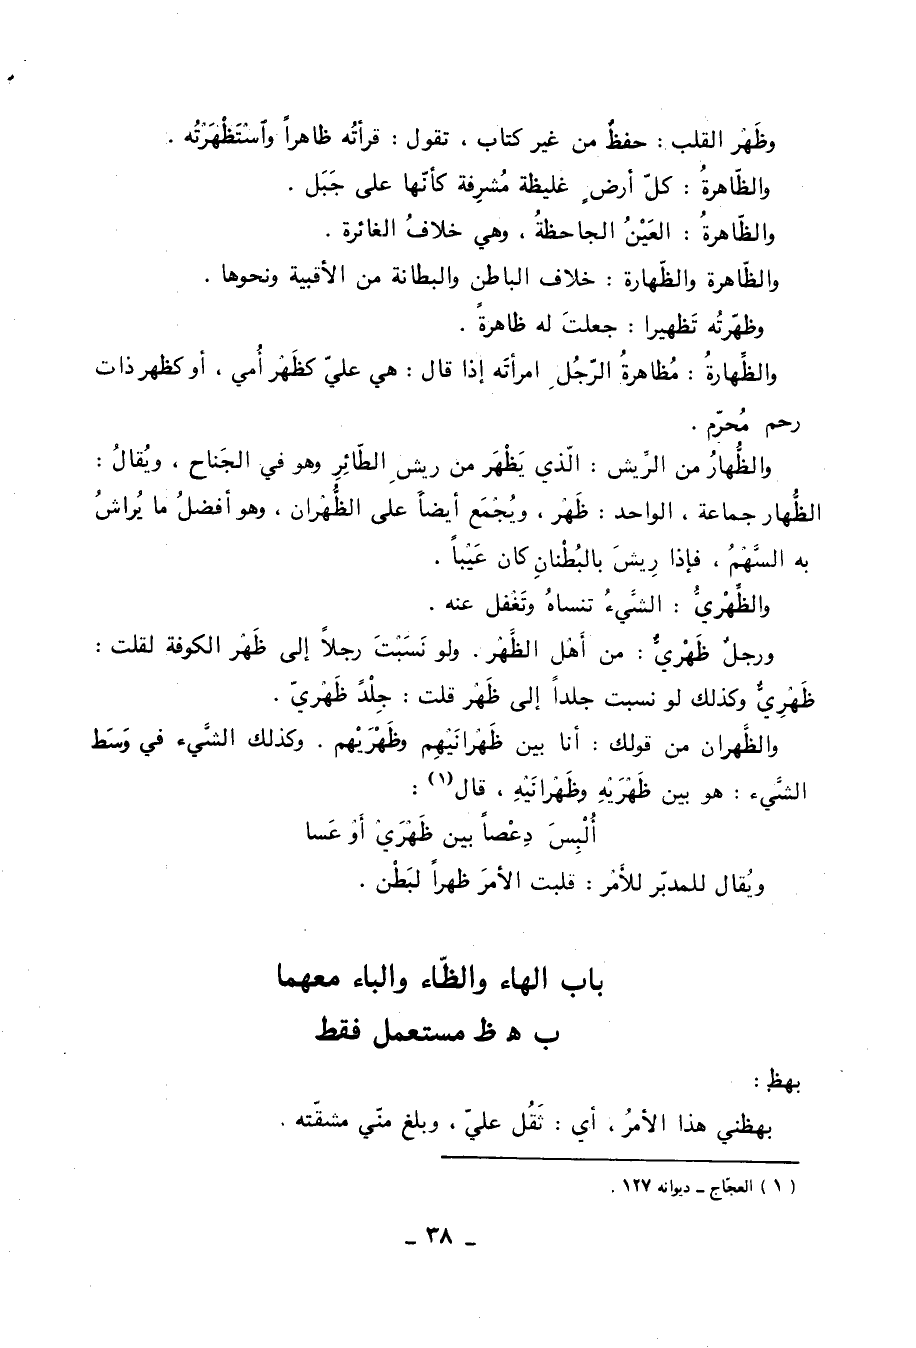 وظَهْر القلب : حفظٌ من غير كتاب ، تقول : قرأتُه ظاهراً وٱستَظْهَرْتُه .
والظّاهرةُ : كلّ أرضٍ غليظة مُشرِفة كأنّها على جَبَل .
والظّاهرةُ : العَيْنُ الجاحظةُ ، وهي خلافُ الغائرة .
والظّاهرة والظّهارة : خلاف الباطن والبطانة من الأقبية ونحوها .
وظهّرتُه تَظهيرا : جعلتَ له ظاهرةً .
والظِّهارةُ : مُظاهرةُ الرّجُلِ امرأتَه إذا قال : هي عليّ كظَهْر أُمي ، أو كظهر ذات
رحم مُحرّم .
والظُّهارُ من الرِّيش : الّذي يَظْهَر من ريشِ الطّائِرِ وهو في الجَناح ، ويُقالُ :
الظُّهار جماعة ، الواحد : ظَهْر ، ويُجْمَع أيضاً على الظُّهْران ، وهو أفضلُ ما يُراشُ
به السَّهْمُ ، فإذا رِيشَ بالبُطْنانِ كان عَيْباً .
والظِّهْريُّ : الشَّيءُ تنساهُ وتَغْفل عنه .
ورجلٌ ظَهْريٌّ : من أَهْل الظَّهْر . ولو نَسَبْتَ رجلاً إلى ظَهْر الكوفة لقلت :
ظَهْرِيٌّ وكذلك لو نسبت جلداً إلى ظَهْر قلت : جِلْدٌ ظَهْريّ .
والظَّهران من قولك : أنا بين ظَهْرانَيْهِم وظَهْرَيْهم . وكذلك الشَّيء في وَسَط
الشَّيء : هو بين ظَهْرَيْهِ وظَهْرانَيْهِ ، قال(١) :
أُلْبِسَ دِعْصاً بين ظَهْرَيْ أَوْعَسا
ويُقال للمدبّر للأَمْر : قلبت الأمرَ ظهراً لبَطْن .
باب الهاء والظّاء والباء معهما
ب ه ظ مستعمل فقط
بهظ :
بهظني هذا الأمرُ ، أي : ثَقُل عليّ ، وبلغ منّي مشقّته .
( ١ ) العجّاج – ديوانه ١٢٧ .
– ٣٨ –